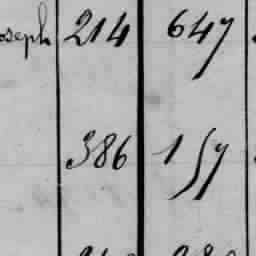 oseph 214 647
386 157